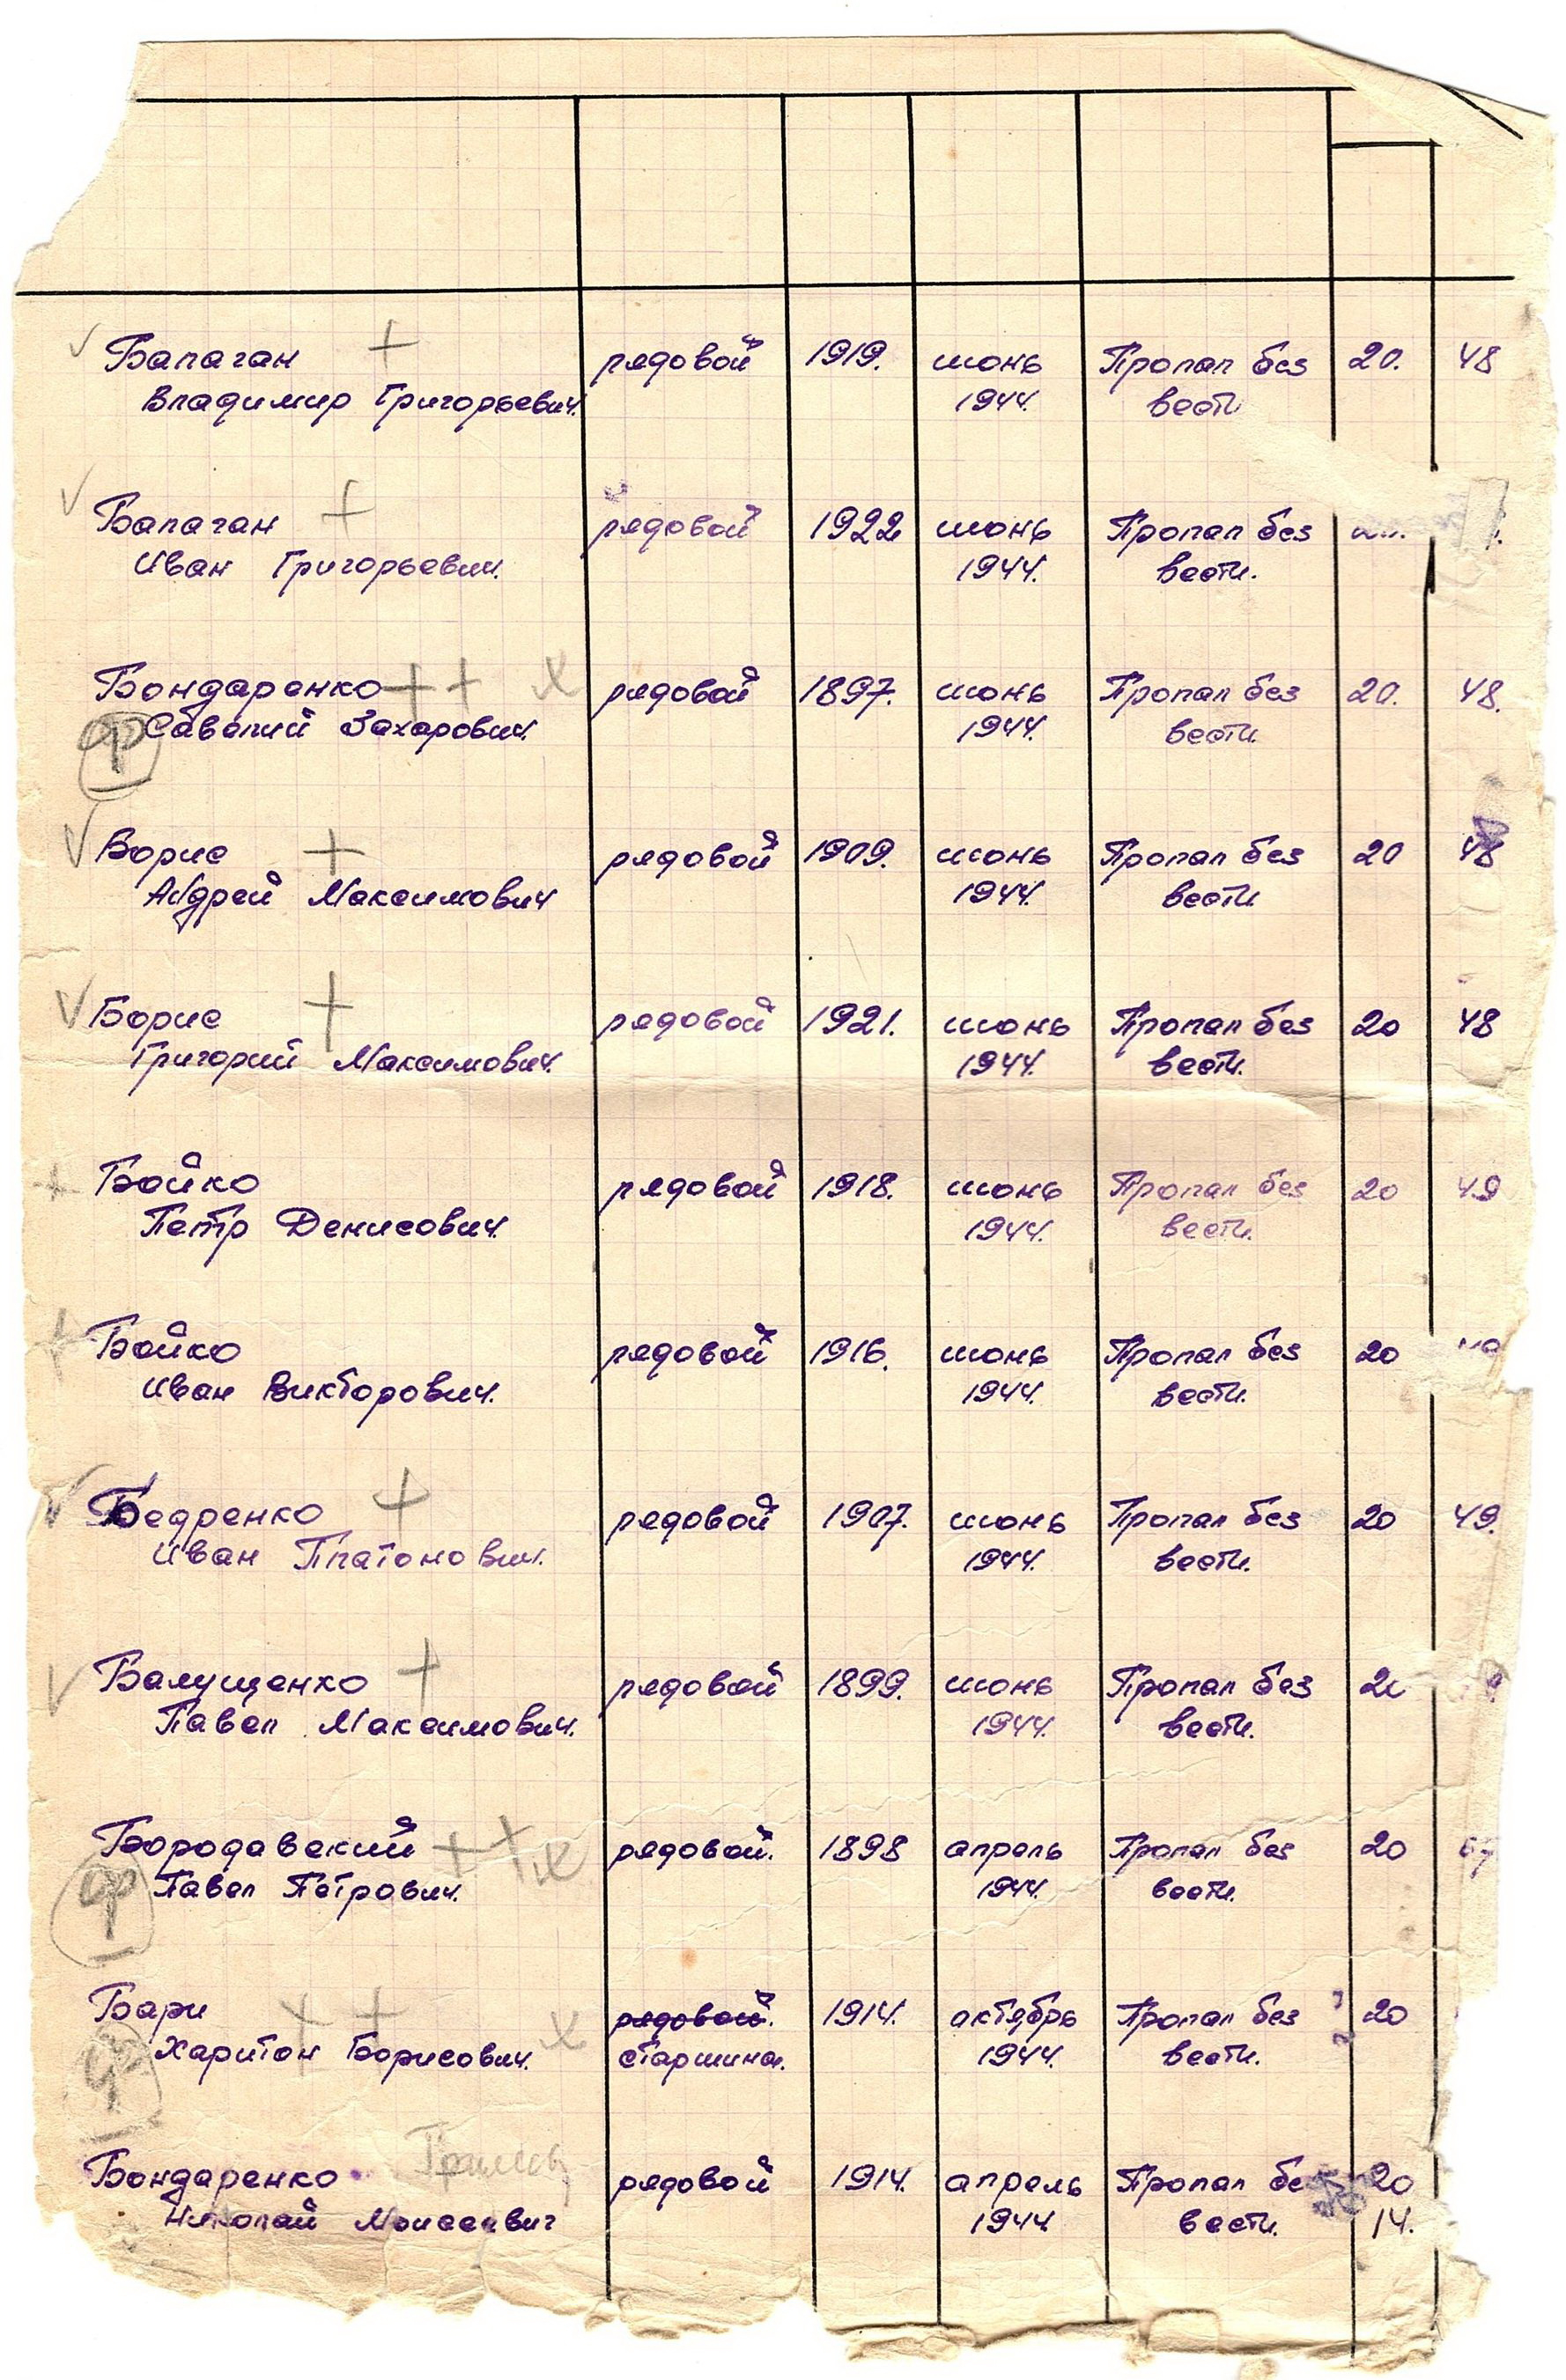 Балаган рядовой 1919. июнь Пропал без 20. 48
Владимир Григорьевич. 1944. вести
Балаган рядовой 1922 июнь Пропал без
Иван Григорьевич. 1944. вести.
Бондаренко рядовой 1897. июнь Пропал без 20. 48.
Савелий Захарович. 1944. вести.
Ф
Борис рядовой 1909. июнь Пропал без 20 48
Андрей Максимович 1944. вести
Борис рядовой 1921. июнь Пропал без 20 48
Григорий Максимович. 1944. вести.
Бойко рядовой 1918. июнь Пропал без 20 49
Петр Денисович. 1944. вести.
Бойко рядовой 1916. июнь Пропал без 20
Иван Викторович. 1944. вести.
Бедренко рядовой 1907. июнь Пропал без 20 49.
Иван Платонович. 1944. вести.
Балущенко рядовой 1899. июнь Пропал без 20
Павел Максимович. 1944. вести.
Бородавский рядовой. 1898 апрель Пропал без 20
Ф Павел Петрович. 1944. вести.
Бари рядовой. 1914. октябрь Пропал без 20
Харитон Борисович. старшина. 1944. вести.
Ф
Бондаренко рядовой 1914. апрель Пропал без 20
Николай Моисеевич 1944 вести. 14.